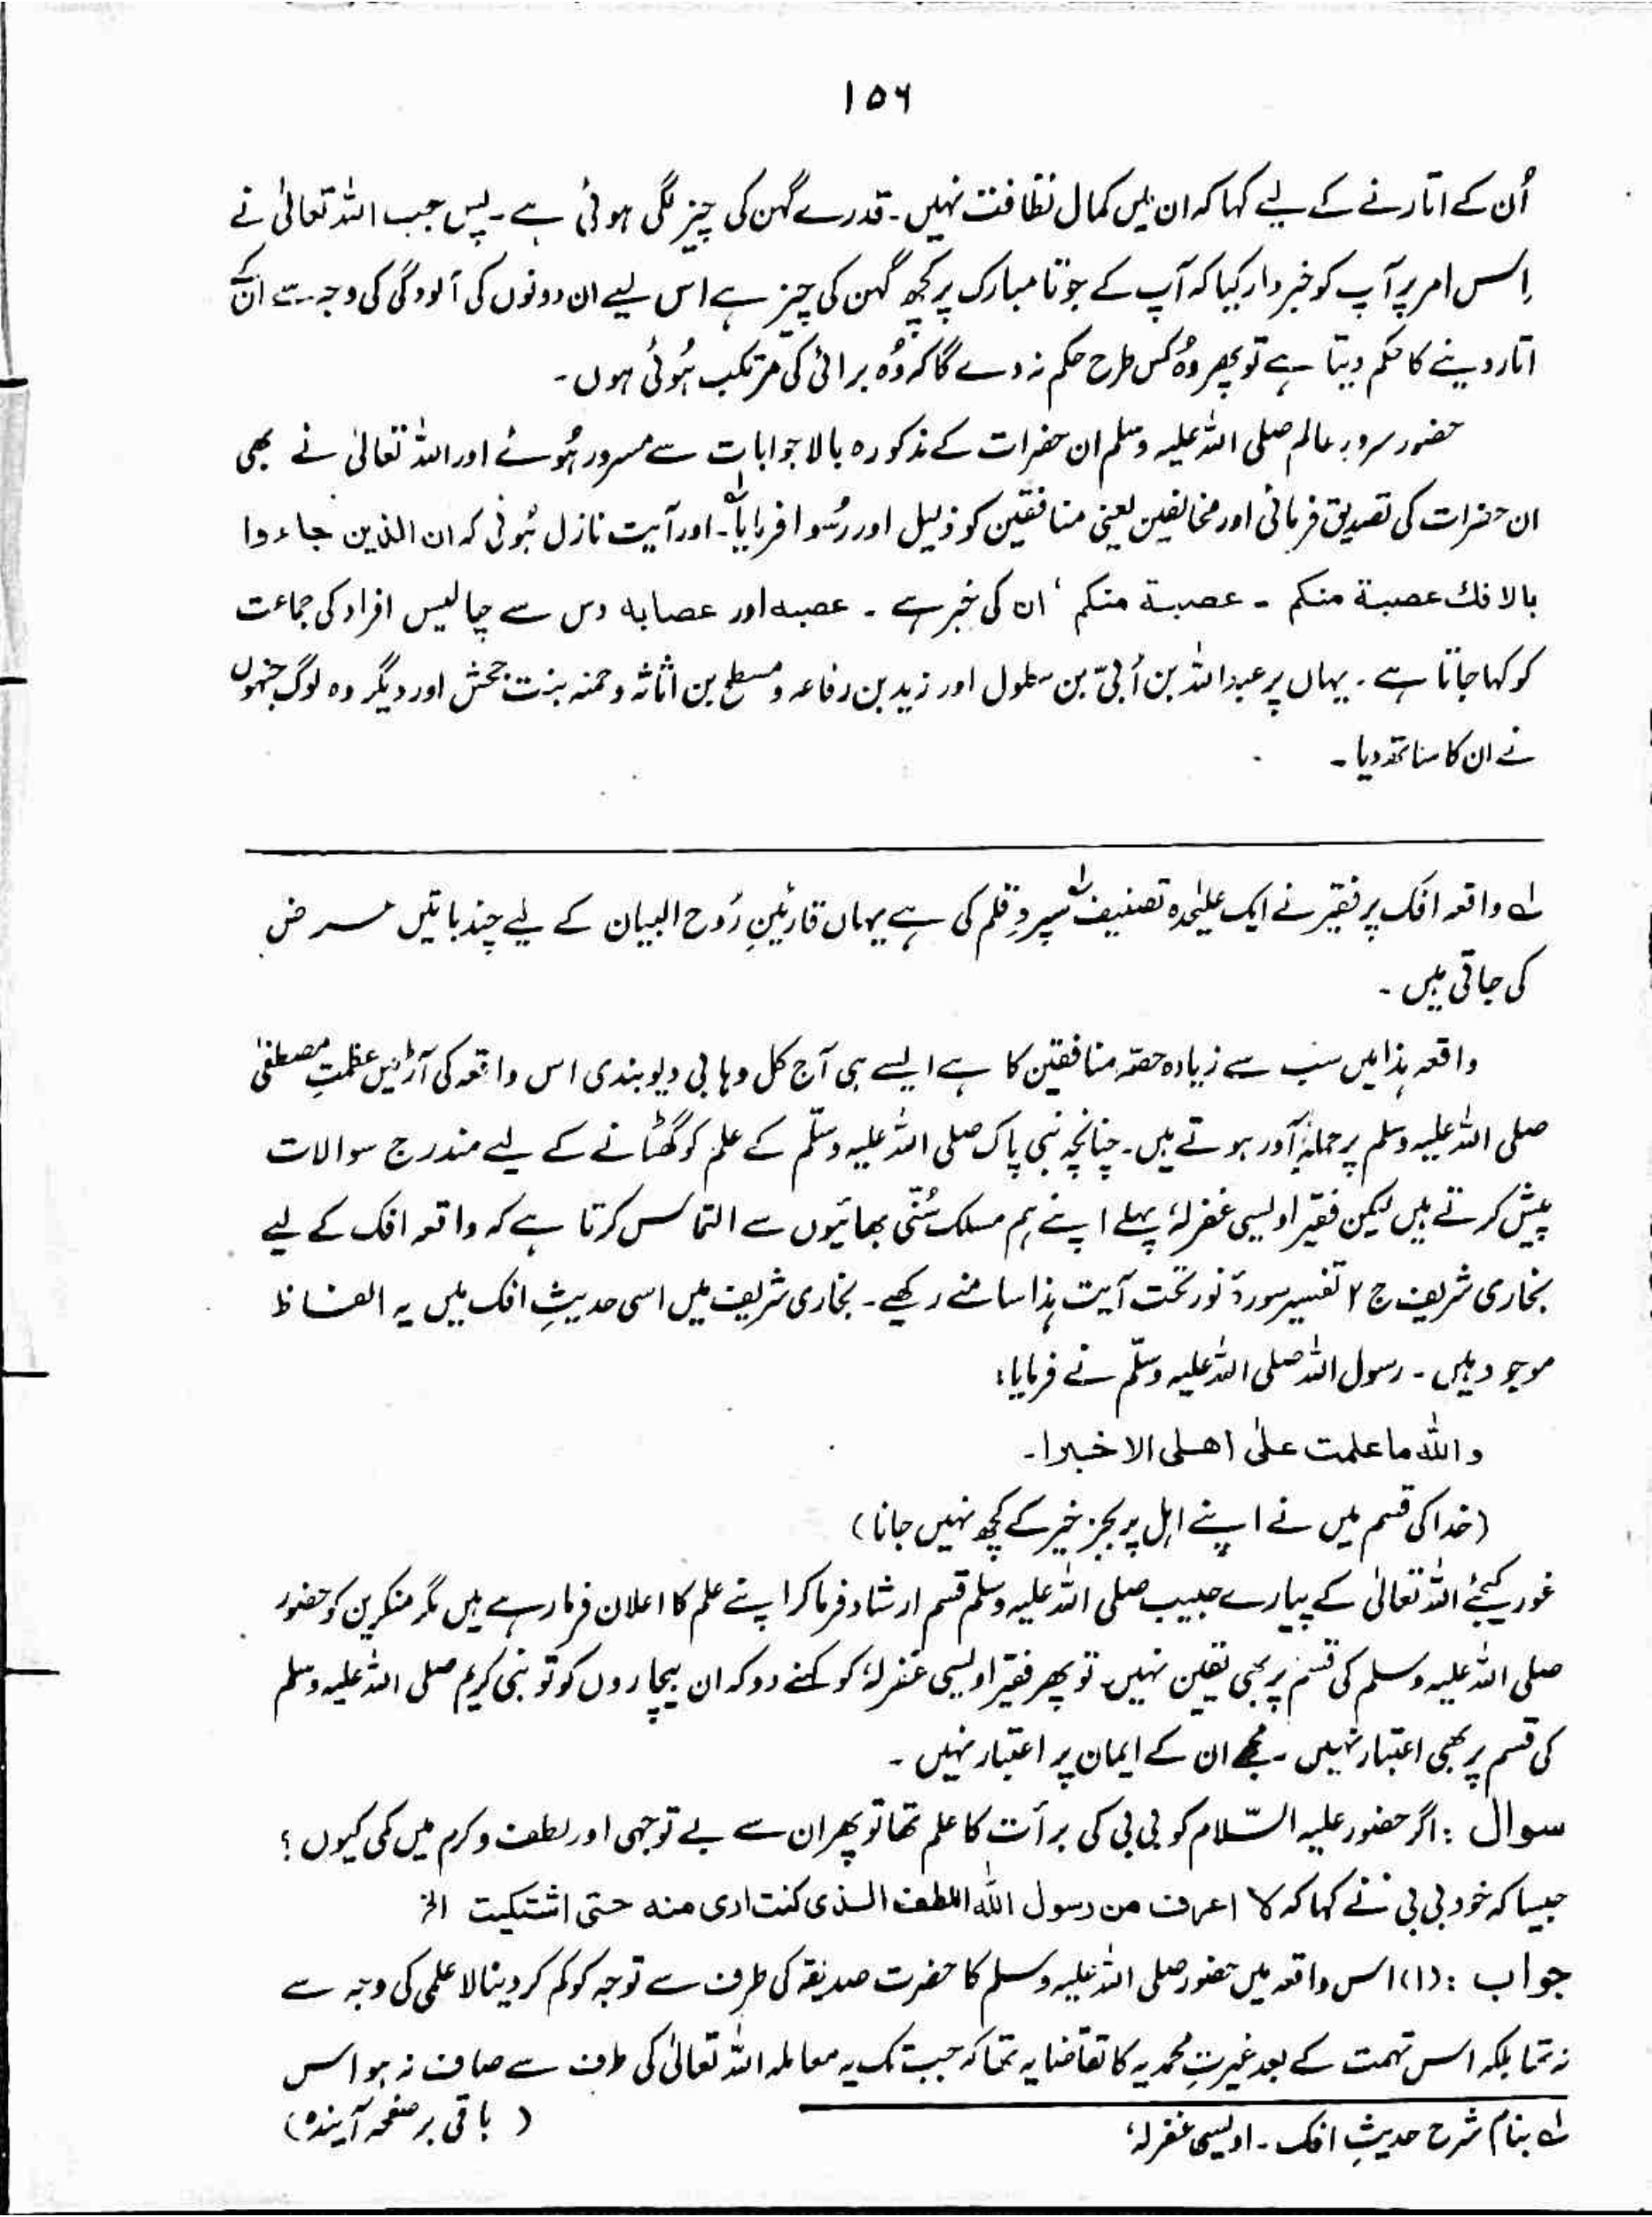 ۱۵۶
اُن کے اتارنے کے لیے کہا کہ ان میں کمال نظافت نہیں۔ قدرے گھن کی چیز لگی ہوئی ہے۔ پس جب اللہ تعالیٰ نے
اِس امر پر آپ کو خبردار کیا کہ آپ کے جوتا مبارک پر کچھ گھن کی چیز ہے اس لیے ان دونوں کی آلودگی کی وجہ سے ان کے
اتار دینے کا حکم دیتا ہے تو پھر وُہ کس طرح حکم نہ دے گا کہ وُہ برائی کی مرتکب ہُوئی ہوں۔
حضور سرورِ عالم صلی اللہ علیہ وسلم ان حضرات کے مذکورہ بالا جوابات سے مسرور ہُوئے اور اللہ تعالیٰ نے بھی
ان حضرات کی تصدیق فرمائی اور مخالفین یعنی منافقین کو ذلیل اور رُسوا فرمایا۔ اور آیت نازل ہُوئی کہ ان الذین جاءوا
بالافك عصبة منکم ۔ عصبة منکم ' ان کی خبر ہے ۔ عصبہ اور عصابہ دس سے چالیس افراد کی جماعت
کو کہا جاتا ہے ۔ یہاں پر عبداللہ بن اُبَیّ بن سلول اور زید بن رفاعہ و مسطح بن اثاثہ و حمنہ بنت جحش اور دیگر وہ لوگ جنہوں
نے ان کا ساتھ دیا ۔
لہ واقعہ افک پر فقیر نے ایک علیٰحدہ تصنیف لہ سپردِ قلم کی ہے یہاں قارئینِ رُوح البیان کے لیے چند باتیں عرض
کی جاتی ہیں ۔
واقعہ ہذا میں سب سے زیادہ حصّہ منافقین کا ہے ایسے ہی آج کل وہابی دیوبندی اس واقعہ کی آڑ میں عظمتِ مصطفیٰ
صلی اللہ علیہ وسلم پر حملہ آور ہوتے ہیں۔ چنانچہ نبی پاک صلی اللہ علیہ وسلّم کے علم کو گھٹانے کے لیے مندرج سوالات
پیش کرتے ہیں لیکن فقیر اویسی غفرلہٗ پہلے اپنے ہم مسلک سُنّی بھائیوں سے التماس کرتا ہے کہ واقعہ افک کے لیے
بخاری شریف ج ۲ تفسیر سورۂ نور تحت آیت ہذا سامنے رکھیے ۔ بخاری شریف میں اسی حدیثِ افک میں یہ الفاظ
موجود ہیں ۔ رسول اللہ صلی اللہ علیہ وسلّم نے فرمایا:
واللہ ما علمت علیٰ اھلی الا خیرا۔
(خدا کی قسم میں نے اپنے اہل پر بجز خیر کے کچھ نہیں جانا)
غور کیجئے اللہ تعالیٰ کے پیارے حبیب صلی اللہ علیہ وسلم قسم ارشاد فرما کر اپنے علم کا اعلان فرما رہے ہیں مگر منکرین کو حضور
صلی اللہ علیہ وسلم کی قسم پر بھی یقین نہیں۔ تو پھر فقیر اویسی غفرلہٗ کو کہنے دو کہ ان بیچاروں کو تو نبی کریم صلی اللہ علیہ وسلم
کی قسم پر بھی اعتبار نہیں ۔ مجھے ان کے ایمان پر اعتبار نہیں ۔
سوال : اگر حضور علیہ السّلام کو بی بی کی برأت کا علم تھا تو پھر ان سے بے توجہی اور لطف و کرم میں کمی کیوں ؟
جیسا کہ خود بی بی نے کہا کہ لا اعرف من رسول اللہ اللطف الذی کنت اری منہ حتی اشتکیت الخ
جواب : (۱) اس واقعہ میں حضور صلی اللہ علیہ وسلم کا حضرت صدیقہ کی طرف سے توجہ کو کم کر دینا لاعلمی کی وجہ سے
نہ تھا بلکہ اس تہمت کے بعد غیرتِ محمدیہ کا تقاضا یہ تھا کہ جب تک یہ معاملہ اللہ تعالیٰ کی طرف سے صاف نہ ہو اس
لہ بنام شرح حدیثِ افک ۔ اویسی غفرلہٗ
( باقی بر صفحہ آیندہ )